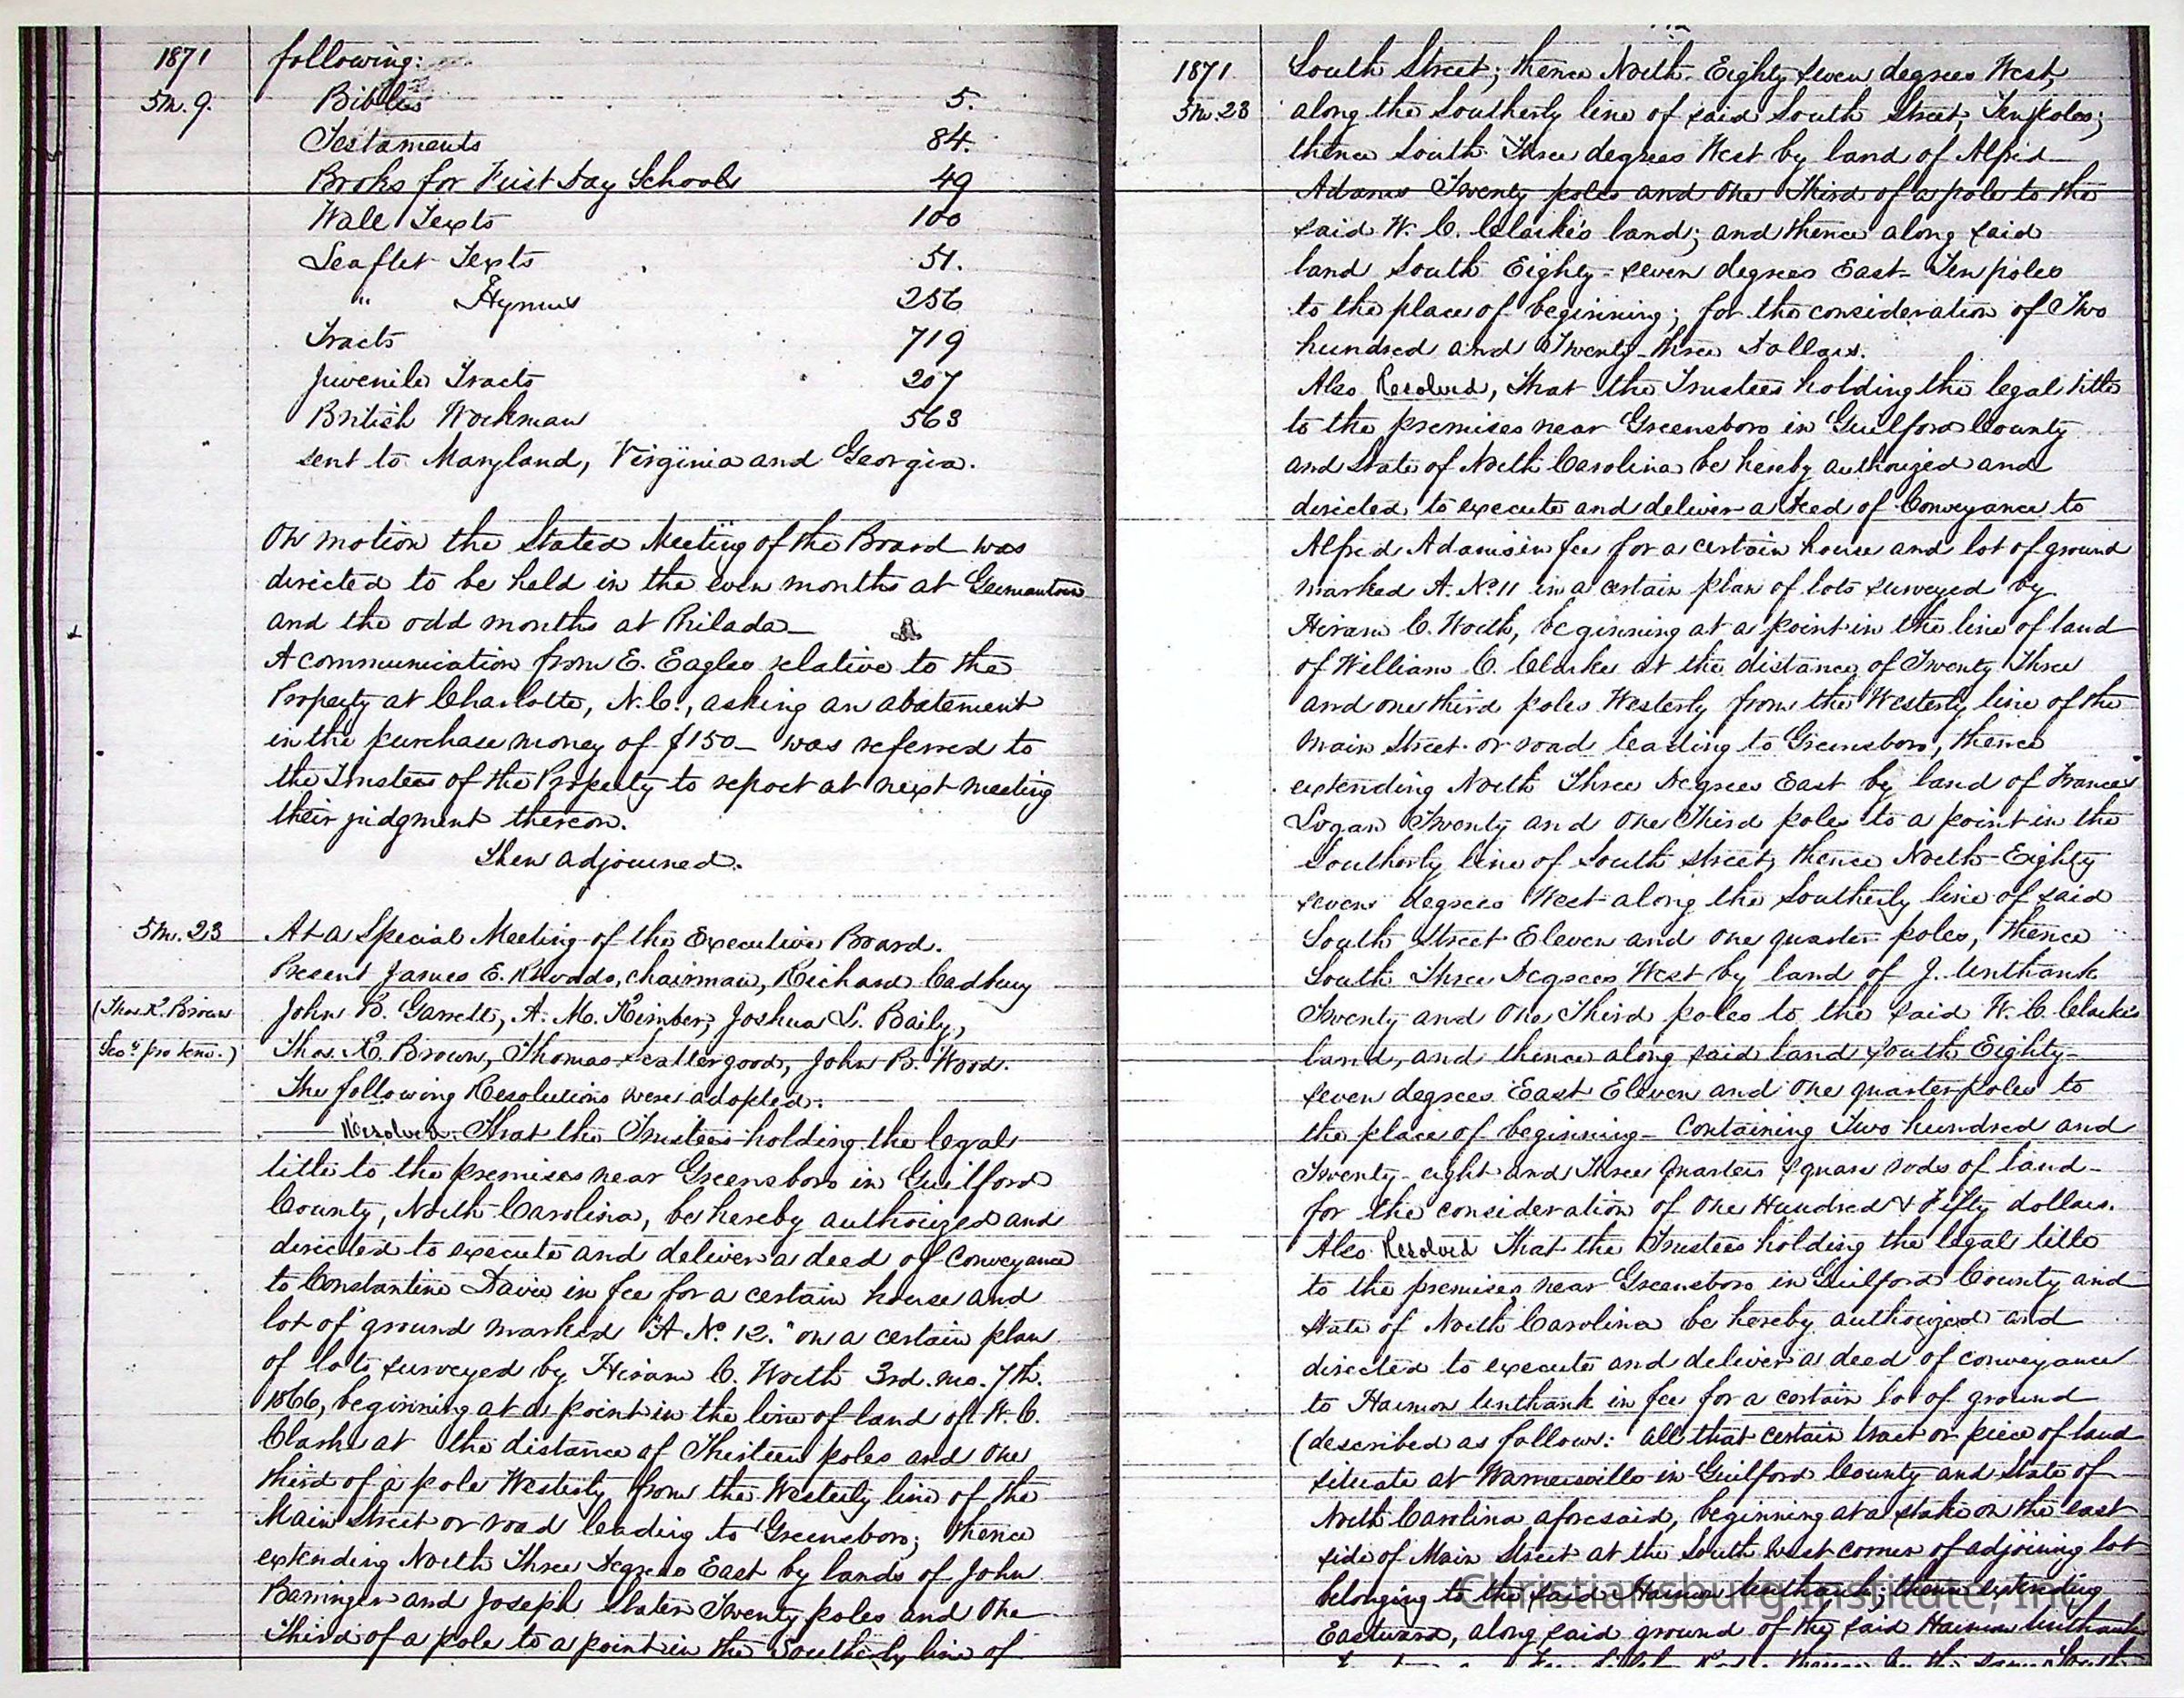 1871 following:
5m. 9. Bibles 5.
Testaments 84.
Books for First Day Schools 49
Wall Texts 100
Leaflet Texts 51.
" Hymns 256
Tracts 719
Juvenile Tracts 207
British Workman 563
sent to Maryland, Virginia and Georgia.
On motion the Stated Meeting of the Board was
directed to be held in the even months at Germantown
and the odd months at Philada—
A communication from E. Eagles relative to the
Property at Charlotte, N.C., asking an abatement
in the purchase money of $150— was referred to
the Trustees of the Property to report at next meeting
their judgment thereon.
Then adjourned.
5m. 23 At a Special Meeting of the Executive Board.
Present James E. Rhoads, chairman, Richard Cadbury
(Thos. K. Brown John B. Garrett, A. M. Kimber, Joshua L. Baily,
Secy. pro tem.) Thos. K. Brown, Thomas Scattergood, John B. Wood.
The following Resolutions were adopted:
Resolved. That the Trustees holding the legal
title to the premises near Greensboro in Guilford
County, North Carolina, be hereby authorized and
directed to execute and deliver a deed of Conveyance
to Constantine Davie in fee for a certain house and
lot of ground marked "A No. 12." on a certain plan
of lots surveyed by Hiram C. Worth 3rd. mo. 7th.
1866, beginning at a point in the line of land of W. C.
Clark at the distance of Thirteen poles and One
third of a pole Westerly from the Westerly line of the
Main Street or road leading to Greensboro; thence
extending North Three Degrees East by lands of John
Barringer and Joseph Slater Twenty poles and One
Third of a pole to a point in the Southerly line of
1871 South Street; thence North Eighty seven degrees West,
5m. 23 along the Southerly line of said South Street, Ten poles;
thence South Three degrees West by land of Alfred
Adams Twenty poles and One Third of a pole to the
said W. C. Clarke's land; and thence along said
land South Eighty-seven degrees East Ten poles
to the place of beginning; for the consideration of Two
hundred and Twenty-three Dollars.
Also Resolved, That the Trustees holding the legal title
to the premises near Greensboro in Guilford County
and State of North Carolina be hereby authorized and
directed to execute and deliver a Deed of Conveyance to
Alfred Adams in fee for a certain house and lot of ground
marked A. No. 11 in a certain plan of lots surveyed by
Hiram C. Worth, beginning at a point in the line of land
of William C. Clarke at the distance of Twenty Three
and one third poles Westerly from the Westerly line of the
Main Street or road leading to Greensboro, thence
extending North Three Degrees East by land of Frances
Logan Twenty and One Third poles to a point in the
Southerly line of South street, thence North Eighty
seven degrees West along the Southerly line of said
South Street Eleven and one quarter poles, thence
South Three Degrees West by land of J. Unthank
Twenty and One Third poles to the said W. C. Clarke's
land, and thence along said land South Eighty-
seven degrees East Eleven and One quarter poles to
the place of beginning— Containing Two hundred and
Twenty-eight and Three Quarters square rods of land—
for the consideration of One Hundred & Fifty dollars.
Also Resolved That the Trustees holding the legal title
to the premises near Greensboro in Guilford County and
State of North Carolina be hereby authorized and
directed to execute and deliver a deed of conveyance
to Harmon Unthank in fee for a certain lot of ground
(described as follows: All that certain tract or piece of land
situate at Warnersville in Guilford County and State of
North Carolina aforesaid, beginning at a stake on the east
side of Main Street at the South West corner of adjoining lot
belonging to the said Harmon Unthank; thence extending
Eastward, along said ground of the said Harmon Unthank
Christiansburg Institute, Inc.